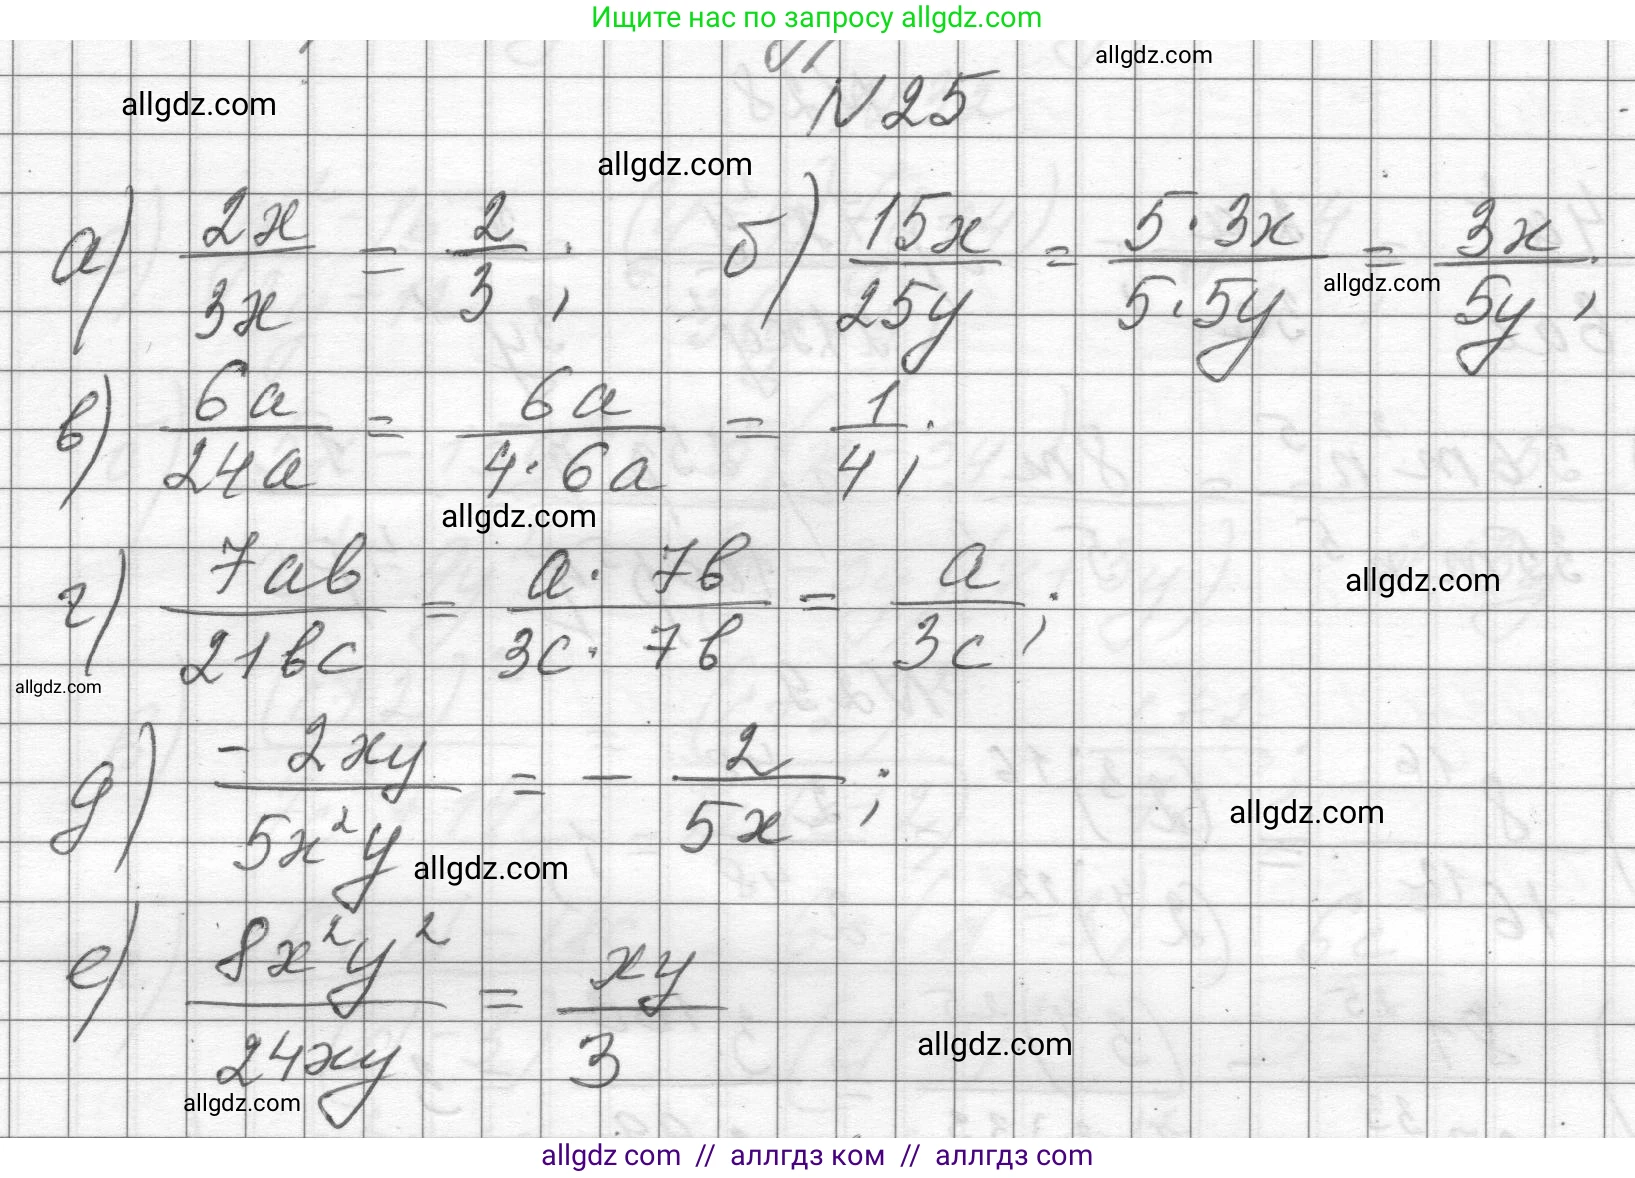 Ищите нас по запросу allgdz.com
allgdz.com
allgdz.com
N 25
allgdz.com
а) 2x/3x = 2/3; б) 15x/25y = 5·3x/5·5y = 3x/5y;
allgdz.com
в) 6a/24a = 6a/4·6a = 1/4;
allgdz.com
г) 7ab/21bc = a·7b/3c·7b = a/3c;
allgdz.com
allgdz.com
д) -2xy/5x²y = - 2/5x;
allgdz.com
allgdz.com
е) 8x²y²/24xy = xy/3
allgdz.com
allgdz.com
allgdz com // аллгдз ком // аллгдз com